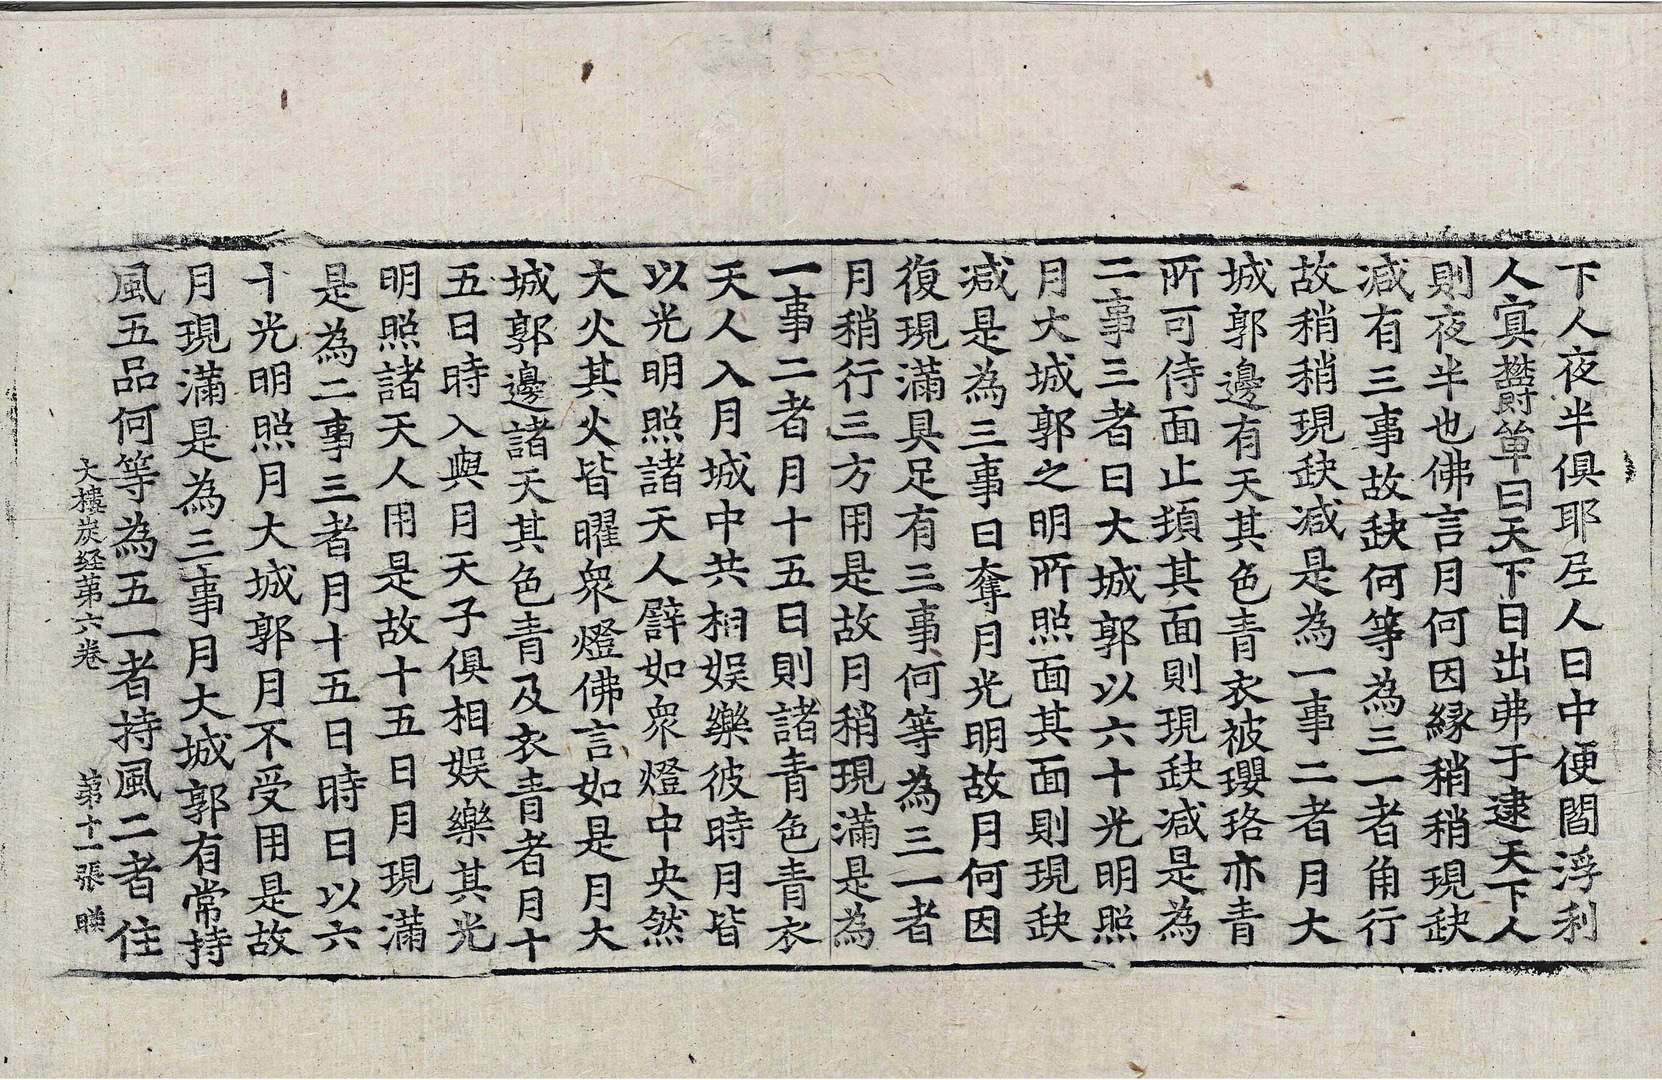 下人夜半俱耶尼人日中便閻浮利
人寘欝單曰天下日出弗于逮天下人
則夜半也佛言月何因緣稍稍現缺
减有三事故缺何等為三一者角行
故稍稍現缺减是為一事二者月大
城郭邊有天其色青衣被瓔珞亦青
所可侍面止頊其面則現缺减是為
二事三者日大城郭以六十光明照
月大城郭之明所照面其面則現缺
减是為三事日奪月光明故月何因
復現滿具足有三事何等為三一者
月稍行三方用是故月稍現滿是為
一事二者月十五日則諸青色青衣
天人入月城中共相娛樂彼時月皆
以光明照諸天人譬如衆燈中央然
大火其火皆曜衆燈佛言如是月大
城郭邊諸天其色青及衣青者月十
五日時入與月天子俱相娛樂其光
明照諸天人用是故十五日月現滿
是為二事三者月十五日時日以六
十光明照月大城郭月不受用是故
月現滿是為三事月大城郭有常持
風五品何等為五一者持風二者住
大樓炭経第六卷 第十一張